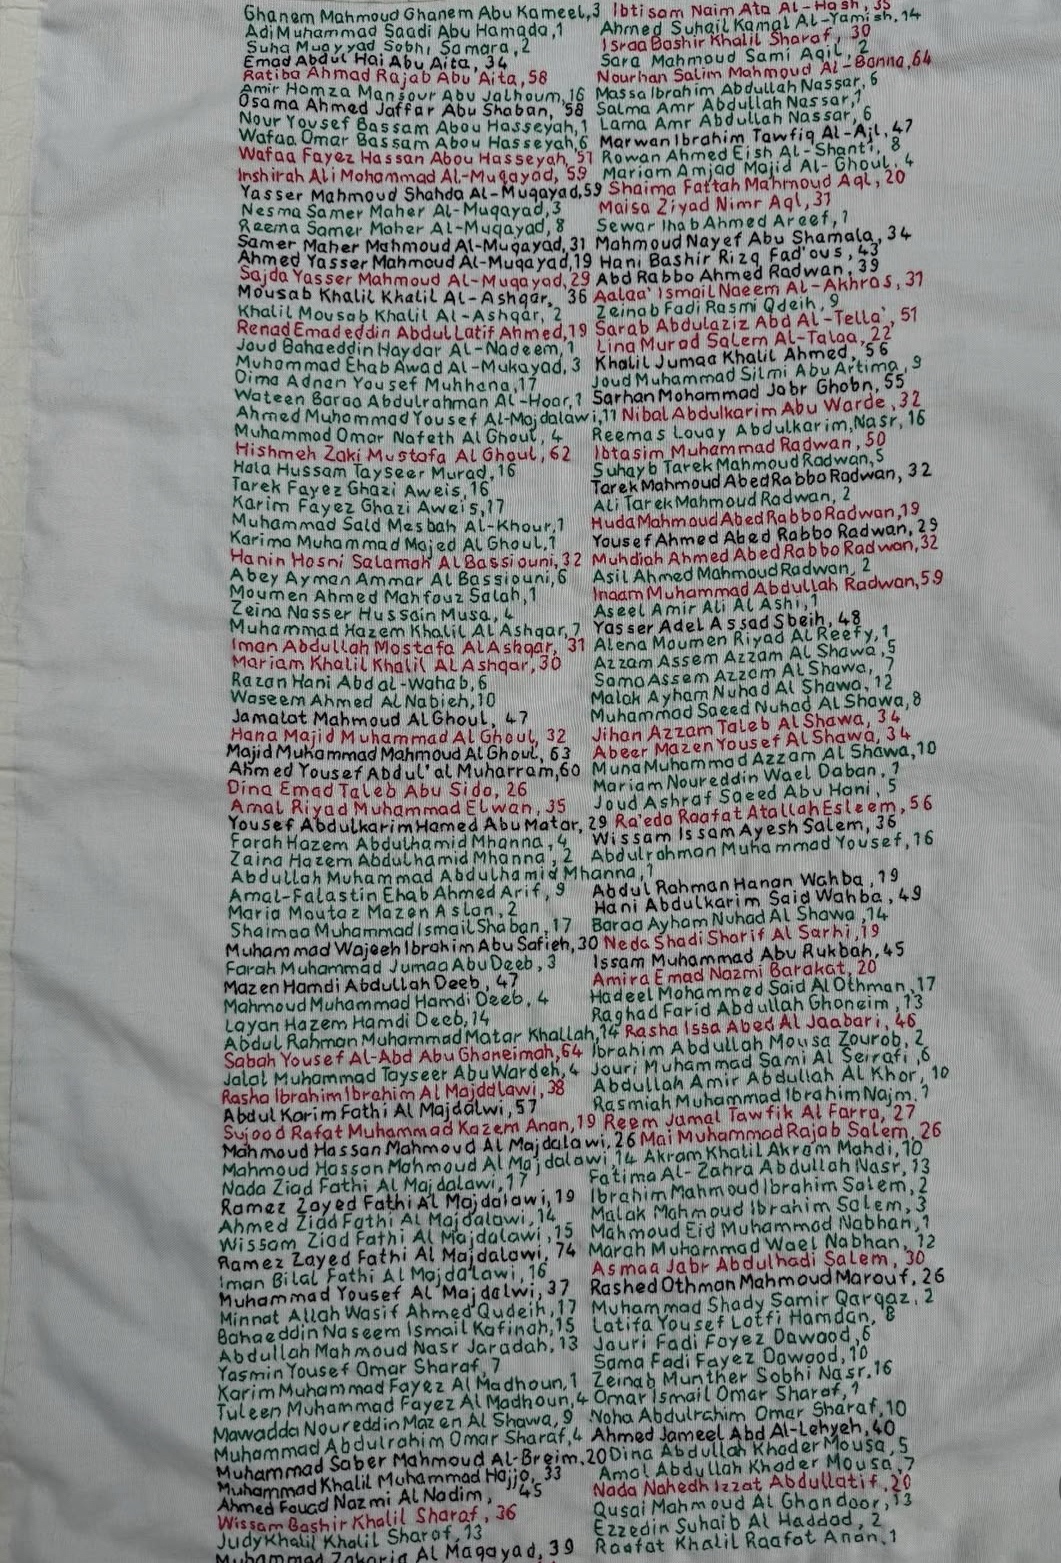 Ghanem Mahmoud Ghanem Abu Kameel,3
Adi Muhammad Saadi Abu Hamada,1
Suha Muayyad Sobhi Samara,2
Emad Abdul Hai Abu Aita, 34
Ratiba Ahmad Rajab Abu'Aita, 58
Amir Hamza Mansour Abu Jalhoum,16
Osama Ahmed Jaffar Abu Shaban, 58
Nour Yousef Bassam Abou Hasseyah,1
Wafaa Omar Bassam Abou Hasseyah,6
Wafaa Fayez Hassan Abou Hasseyah,51
Inshirah Ali Mohammad Al-Muqayad, 59
Yasser Mahmoud Shahda Al-Muqayad,59
Nesma Samer Maher Al-Muqayad,3
Reema Samer Maher Al-Muqayad, 8
Samer Maher Mahmoud Al-Muqayad, 31
Ahmed Yasser Mahmoud Al-Muqayad,19
Sajda Yasser Mahmoud Al-Muqayad,29
Mousab Khalil Khalil Al-Ashqar, 36
Khalil Mousab Khalil Al-Ashqar, 2
Renad Emadeddin Abdul Latif Ahmed,19
Joud Bahaeddin Haydar Al-Nadeem,1
Muhammad Ehab Awad Al-Mukayad, 3
Dima Adnan Yousef Muhhana,17
Wateen Baraa Abdulrahman Al-Hoar,1
Ahmed Muhammad Yousef Al-Majdalawi,11
Muhammad Omar Nafeth Al Ghoul, 4
Hishmeh Zaki Mustafa Al Ghoul, 62
Hala Hussam Tayseer Murad,16
Tarek Fayez Ghazi Aweis,16
Karim Fayez Ghazi Aweis,17
Muhammad Said Mesbah Al-Khour,1
Karima Muhammad Majed Al Ghoul,1
Hanin Hosni Salamah Al Bassiouni, 32
Abey Ayman Ammar Al Bassiouni,6
Moumen Ahmed Mahfouz Salah,1
Zeina Nasser Hussain Musa, 4
Muhammad Hazem Khalil Al Ashqar,7
Iman Abdullah Mostafa Al Ashqar, 31
Mariam Khalil Khalil Al Ashqar, 30
Razan Hani Abdal-Wahab,6
Waseem Ahmed Al Nabieh,10
Jamalat Mahmoud Al Ghoul, 47
Hana Majid Muhammad Al Ghoul, 32
Majid Muhammad Mahmoud Al Ghoul, 63
Ahmed Yousef Abdul'al Muharram,60
Dina Emad Taleb Abu Sido, 26
Amal Riyad Muhammad Elwan, 35
Yousef Abdulkarim Hamed Abu Matar, 29
Farah Hazem Abdulhamid Mhanna, 4
Zaina Hazem Abdulhamid Mhanna, 2
Abdullah Muhammad Abdulhamid Mhanna,1
Amal-Falastin Ehab Ahmed Arif, 9
Maria Moutaz Mazen Aslan,2
Shaimaa Muhammad Ismail Shaban, 17
Muhammad Wajeeh Ibrahim Abu Safieh, 30
Farah Muhammad Jumaa Abu Deeb, 3
Mazen Hamdi Abdullah Deeb, 47
Mahmoud Muhammad Hamdi Deeb, 4
Layan Hazem Hamdi Deeb,14
Abdul Rahman Muhammad Matar Khallah,14
Sabah Yousef Al-Abd Abu Ghoneimah,64
Jalal Muhammad Tayseer Abu Wardeh,4
Rasha Ibrahim Ibrahim Al Majdalawi, 38
Abdul Karim Fathi Al Majdalwi,57
Sujood Rafat Muhammad Kazem Anan,19
Mahmoud Hassan Mahmoud Al Majdalawi, 26
Mahmoud Hassan Mahmoud Al Majdalawi, 14
Nada Ziad Fathi Al Majdalawi, 17
Ramez Zayed Fathi Al Majdalawi, 19
Ahmed Ziad Fathi Al Majdalawi, 14
Wissam Ziad Fathi Al Majdalawi, 15
Ramez Zayed Fathi Al Majdalawi, 74
Iman Bilal Fathi Al Majdalawi, 16
Muhammad Yousef Al Majdalwi, 37
Minnat Allah Wasif Ahmed Qudeih, 17
Bahaeddin Naseem Ismail Kafinah,15
Abdullah Mahmoud Nasr Jaradah, 13
Yasmin Yousef Omar Sharaf, 7
Karim Muhammad Fayez Al Madhoun,1
Tuleen Muhammad Fayez Al Madhoun,4
Mawadda Noureddin Mazen Al Shawa, 9
Muhammad Abdulrahim Omar Sharaf,4
Muhammad Saber Mahmoud Al-Breim,20
Muhammad Khalil Muhammad Hajjo, 33
Ahmed Fouad Nazmi Al Nadim, 45
Wissam Bashir Khalil Sharaf, 36
Judy Khalil Khalil Sharaf, 13
Muhammad Zakaria Al Maqayad, 39
Ibtisam Naim Ata Al-Hash, 35
Ahmed Suhail Kamal Al-Yamish, 14
Israa Bashir Khalil Sharaf, 30
Sara Mahmoud Sami Aqil, 2
Nourhan Salim Mahmoud Al-Banna,64
Massa Ibrahim Abdullah Nassar, 6
Salma Amr Abdullah Nassar,1
Lama Amr Abdullah Nassar, 6
Marwan Ibrahim Tawfiq Al-Ajl, 47
Rowan Ahmed Eish Al-Shanti, 8
Mariam Amjad Majid Al-Ghoul, 4
Shaima Fattah Mahmoud Aql, 20
Maisa Ziyad Nimr Aql,37
Sewar Ihab Ahmed Areef, 1
Mahmoud Nayef Abu Shamala, 34
Hani Bashir Rizq Fad'ous, 43
Abd Rabbo Ahmed Radwan, 39
Aalaa' Ismail Naeem Al-Akhras, 37
Zeinab Fadi Rasmi Qdeih, 9
Sarab Abdulaziz Abd Al-Tella', 51
Lina Murad Salem Al-Talaa, 22
Khalil Jumaa Khalil Ahmed, 56
Joud Muhammad Silmi Abu Artima, 9
Sarhan Mohammad Jabr Ghobn, 55
Nibal Abdulkarim Abu Warde, 32
Reemas Louay Abdulkarim,Nasr, 16
Ibtasim Muhammad Radwan, 50
Suhayb Tarek Mahmoud Radwan,5
Tarek Mahmoud Abed Rabbo Radwan, 32
Ali Tarek Mahmoud Radwan, 2
Huda Mahmoud Abed Rabbo Radwan,19
Yousef Ahmed Abed Rabbo Radwan, 29
Muhdiah Ahmed Abed Rabbo Radwan,32
Asil Ahmed Mahmoud Radwan, 2
Inaam Muhammad Abdullah Radwan,59
Aseel Amir Ali Al Ashi,1
Yasser Adel Assad Sbeih, 48
Alena Moumen Riyad Al Reefy,1
Azzam Assem Azzam Al Shawa,5
Sama Assem Azzam Al Shawa, 7
Malak Ayham Nuhad Al Shawa,12
Muhammad Saeed Nuhad Al Shawa,8
Jihan Azzam Taleb Al Shawa, 34
Abeer Mazen Yousef Al Shawa, 34
Muna Muhammad Azzam Al Shawa,10
Mariam Noureddin Wael Daban, 7
Joud Ashraf Saeed Abu Hani, 5
Ra'eda Raafat Atallah Esleem, 56
Wissam Issam Ayesh Salem, 36
Abdulrahman Muhammad Yousef, 16
Abdul Rahman Hanan Wahba, 19
Hani Abdulkarim Said Wahba, 49
Baraa Ayham Nuhad Al Shawa ,14
Neda Shadi Sharif Al Sarhi,19
Issam Muhammad Abu Rukbah, 45
Amira Emad Nazmi Barakat, 20
Hadeel Mohammed Said Al Othman, 17
Raghad Farid Abdullah Ghoneim ,13
Rasha Issa Abed Al Jaabari, 46
Ibrahim Abdullah Mousa Zourob, 2
Jouri Muhammad Sami Al Seirafi ,6
Abdullah Amir Abdullah Al Khor, 10
Rasmiah Muhammad Ibrahim Najm, 7
Reem Jamal Tawfik Al Farra, 27
Mai Muhammad Rajab Salem, 26
Akram Khalil Akram Mahdi, 10
Fatima Al-Zahra Abdullah Nasr, 13
Ibrahim Mahmoud Ibrahim Salem, 2
Malak Mahmoud Ibrahim Salem, 3
Mahmoud Eid Muhammad Nabhan,1
Marah Muhammad Wael Nabhan, 12
Asmaa Jabr Abdulhadi Salem, 30
Rashed Othman Mahmoud Marouf, 26
Muhammad Shady Samir Qarqaz, 2
Latifa Yousef Lotfi Hamdan, 8
Jouri Fadi Fayez Dawood,6
Sama Fadi Fayez Dawood,10
Zeinab Munther Sobhi Nasr,16
Omar Ismail Omar Sharaf, 1
Noha Abdulrahim Omar Sharaf,10
Ahmed Jameel Abd Al-Lehyeh, 40
Dina Abdullah Khader Mousa, 5
Amal Abdullah Khader Mousa,7
Nada Nahedh Izzat Abdullatif,20
Qusai Mahmoud Al Ghandoor,13
Ezzedin Suhaib Al Haddad, 2
Raafat Khalil Raafat Anan,1